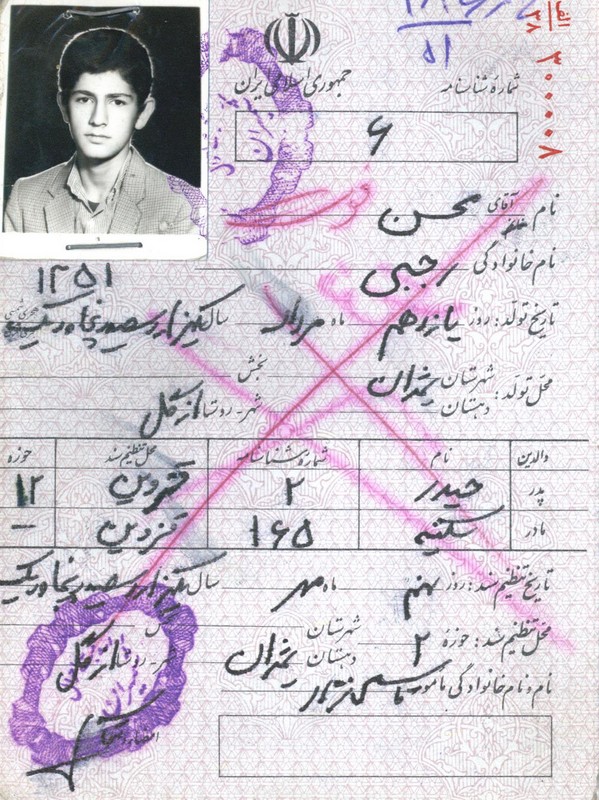 الف
۳۸
۳۰۰۰۰۸
۵۱
جمهوری اسلامی ایران
شماره شناسنامه
۶
فوت
نام آقای محسن
خانم
نام خانوادگی رجبی
۱۳۵۱
تاریخ تولد: روز یازدهم ماه مرداد سال یکهزار و سیصد و پنجاه و یک
هجری شمسی
محل تولد: شهرستان تهران بخش
دهستان شهر - روستا ازگل
والدین نام شماره شناسنامه محل تنظیم سند حوزه
پدر حیدر ۲ قزوین ۱۲
مادر سکینه ۱۶۵ قزوین —
تاریخ تنظیم سند: روز نهم ماه مهر سال یکهزار و سیصد و پنجاه و یک
محل تنظیم سند: حوزه ۲ شهرستان تهران
دهستان شهر - روستا ازگل
نام و نام خانوادگی مامور